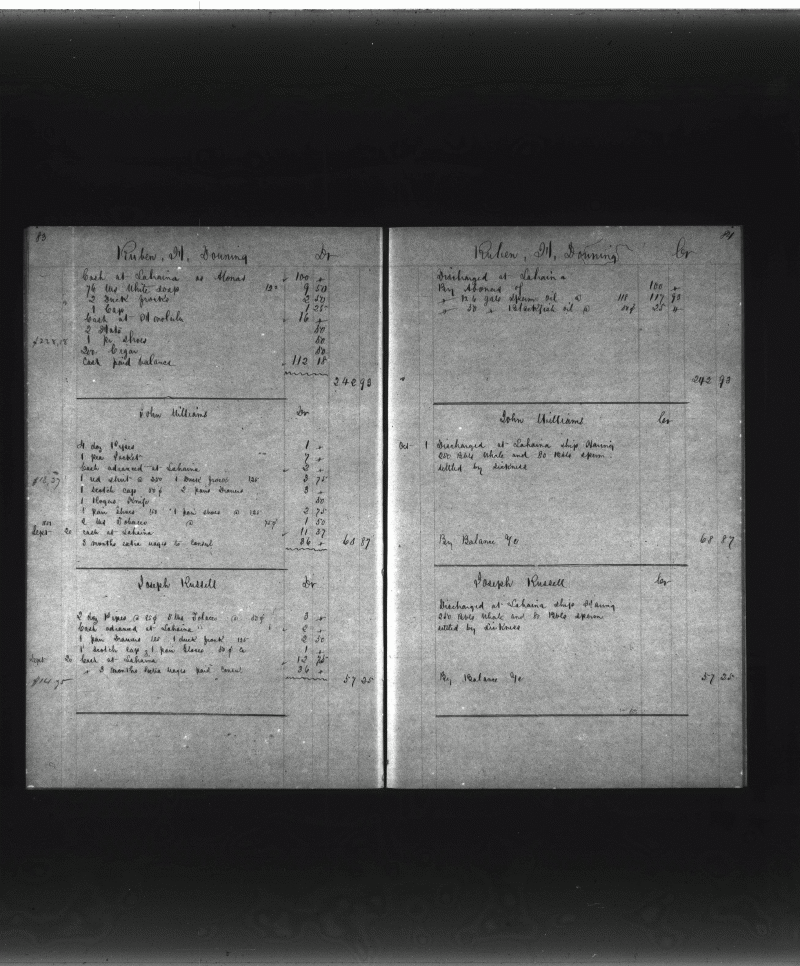 83
Reuben, M, Downing Dr
Cash at Lahaina as Monas 100 "
76 lbs White soap 9 50
2 Duck frocks 2 50
1 Cap 1 25
Cash at 16 "
2 Hats 50
1 pr Shoes 50
50
Cash paid balance 112 18
242 93
John Williams Dr
4 day Pipes 1 "
1 pea Jacket 7 "
Cash advanced at Lahaina 2 "
1 red shirt @ 250 1 Duck frock 125 3 75
1 Scotch cap 50¢ 2 pair Drawers 3 "
1 Rogers Knife 50
1 pair Shoes 150 1 pair shoes @ 125 2 75
2 lbs Tobacco @ 75¢ 1 50
Sept 20 cash at Lahaina 11 37
3 months extra wages to Consul 36 "
68 87
Joseph Russell Dr
2 day Pipes @ 25¢ 5 lbs Tobacco @ 50¢ 3 "
Cash advanced at Lahaina 2 "
1 pair Drawers 125 1 duck frock 125 2 50
1 Scotch cap 1 pair Shoes
Sept 20 Cash at Lahaina 12 75
" 3 months extra wages paid Consul 36 "
$14 75
57 25
Reuben, M, Downing Cr
Discharged at Lahaina
By of 100 "
" 126 gals Sperm oil @ 117 93
" 50 " Blackfish oil @ 50¢ 25 "
242 93
John Williams Cr
Oct 1 Discharged at Lahaina ship
250 Bbls Whale and 80 Bbls sperm
settled by sickness
By Balance 68 87
Joseph Russell Cr
Discharged at Lahaina ship
250 Bbls Whale and 80 Bbls sperm
settled by Sickness
By Balance 57 25